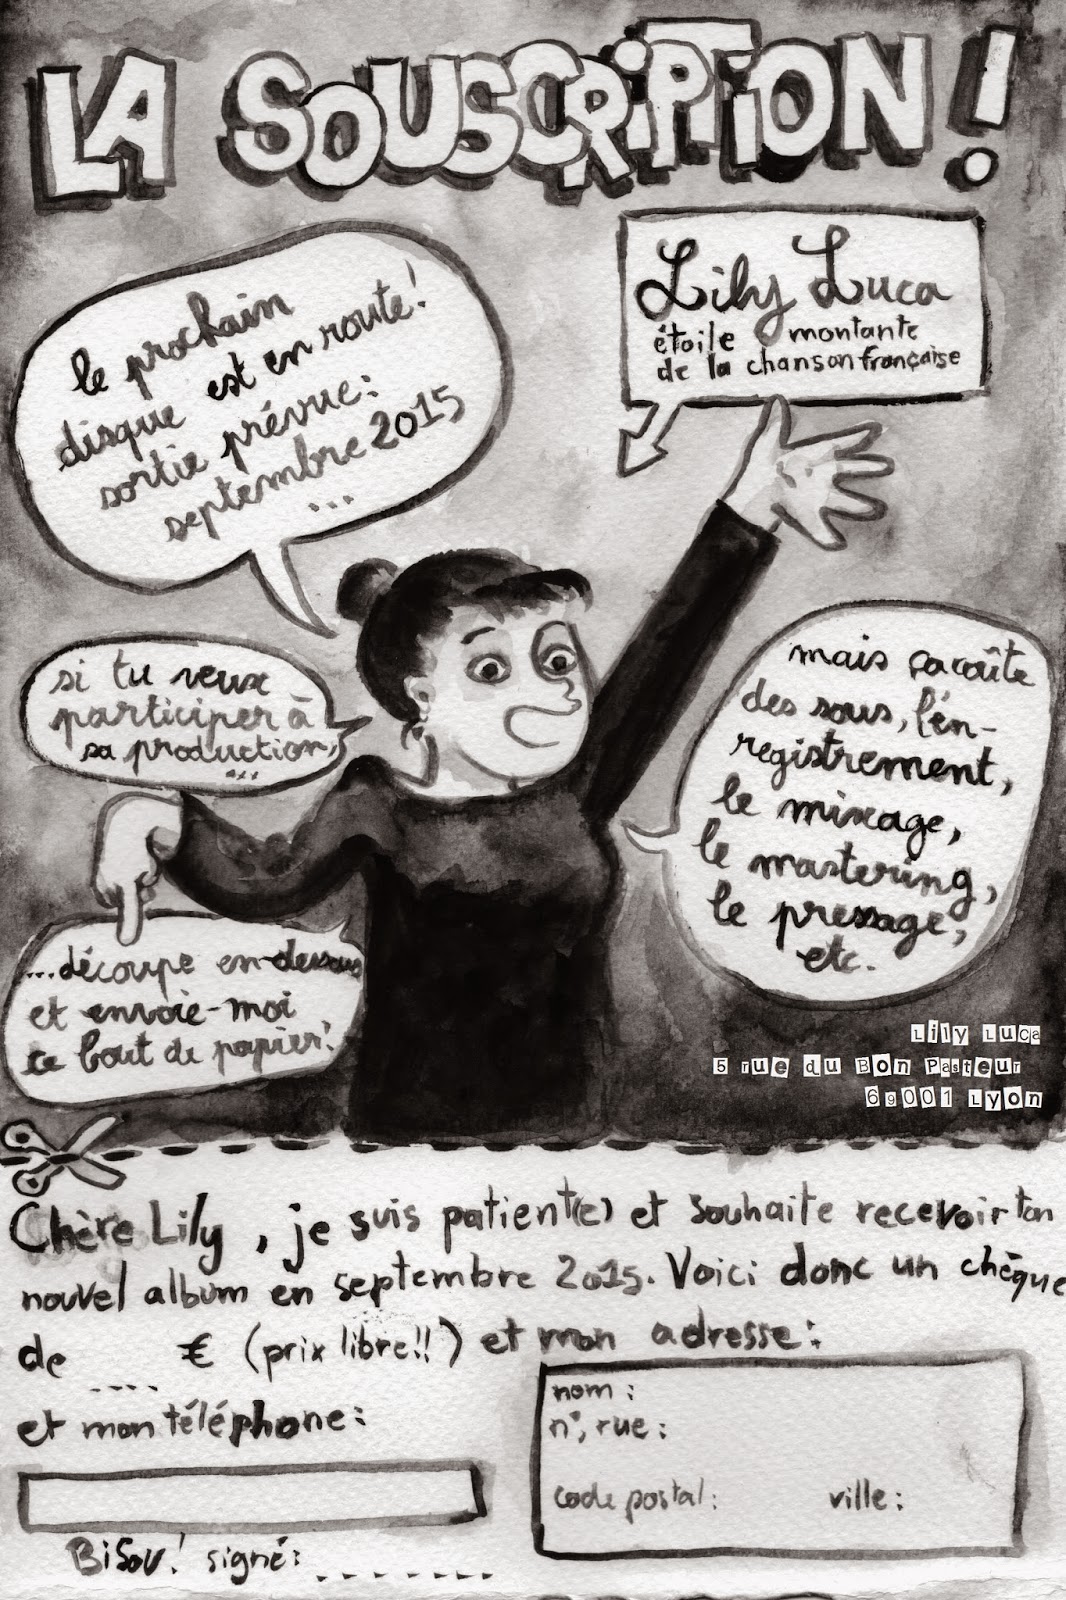 LA SOUSCRIPTION !
le prochain
disque est en route!
sortie prévue:
septembre 2015
...
Lily Luca
étoile montante
de la chanson française
si tu veux
participer à
sa production,
...
mais ça coûte
des sous, l'en-
registrement,
le mixage,
le mastering,
le pressage,
etc.
...découpe en-dessous
et envoie-moi
ce bout de papier!
Lily Luca
5 rue du Bon Pasteur
69001 Lyon
Chère Lily, je suis patient(e) et souhaite recevoir ton
nouvel album en septembre 2015. Voici donc un chèque
de .... € (prix libre!!) et mon adresse:
et mon téléphone:
nom:
n°, rue:
code postal: ville:
Bisou! signé: .......